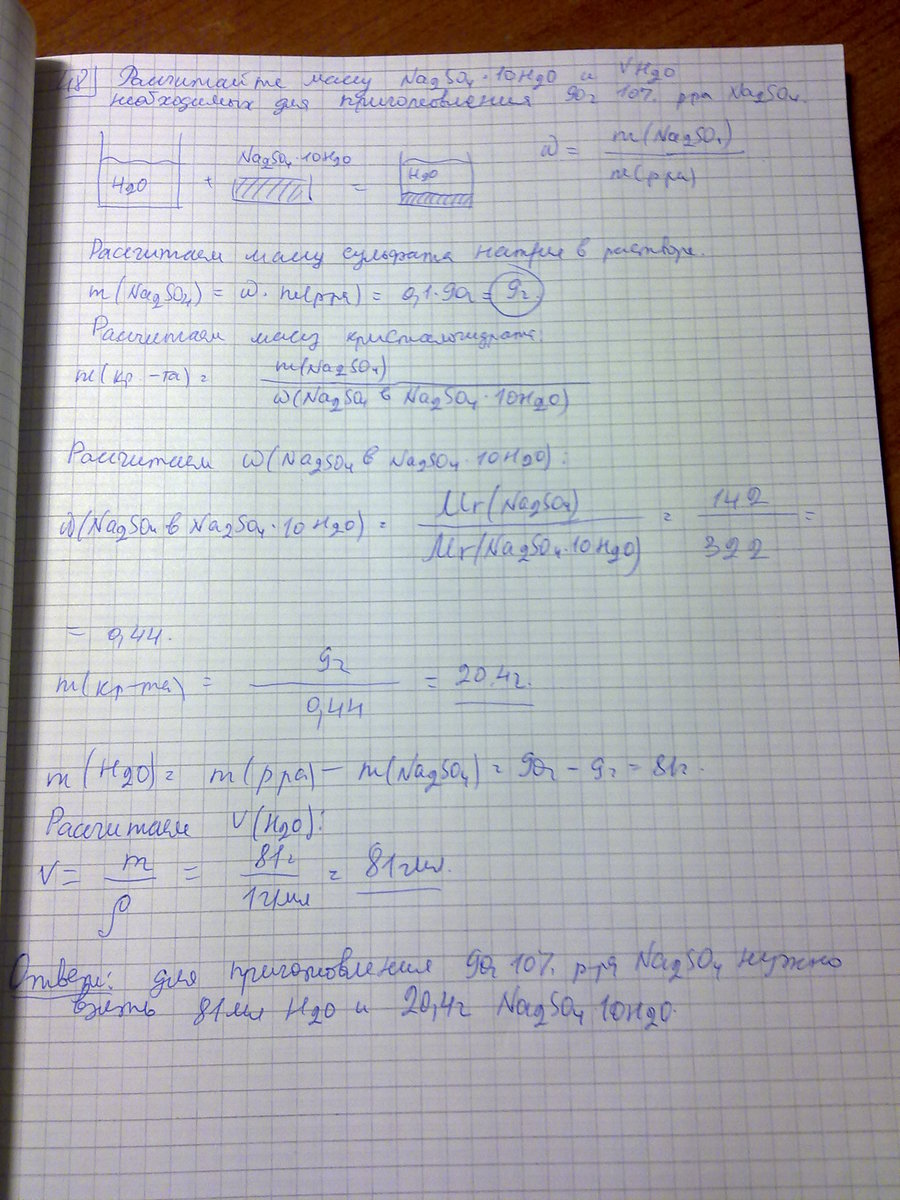 48] Рассчитайте массу Na2SO4·10H2O и VH2O
необходимых для приготовления 90г 10% рра Na2SO4.
H2O + Na2SO4·10H2O = H2O
ω = m(Na2SO4) / m(рра)
Рассчитаем массу сульфата натрия в растворе.
m(Na2SO4) = ω · m(рра) = 0,1·90г = 9г.
Рассчитаем массу кристалогидрата:
m(кр-та) = m(Na2SO4) / ω(Na2SO4 в Na2SO4·10H2O)
Рассчитаем ω(Na2SO4 в Na2SO4·10H2O):
ω(Na2SO4 в Na2SO4·10H2O) = Mr(Na2SO4) / Mr(Na2SO4·10H2O) = 142 / 322 =
= 0,44.
m(кр-та) = 9г / 0,44 = 20,4г.
m(H2O) = m(рра) - m(Na2SO4) = 90г - 9г = 81г.
Рассчитаем V(H2O):
V = m / ρ = 81г / 1г/мл = 81мл.
Ответ: для приготовления 90г 10% рра Na2SO4 нужно
взять 81мл H2O и 20,4г Na2SO4 10H2O.